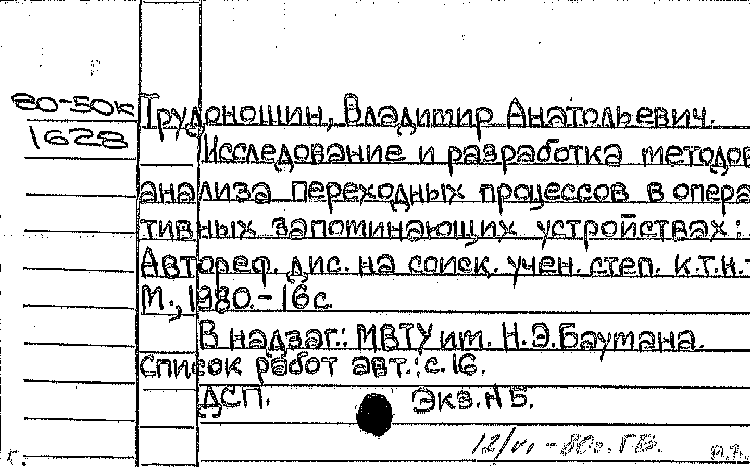 80-50к
1628
Трудоношин, Владимир Анатольевич.
Исследование и разработка методов
анализа переходных процессов в опера-
тивных запоминающих устройствах:
Автореф. дис. на соиск. учен. степ. к.т.н.
М., 1980. - 16 с.
В надзаг.: МВТУ им. Н.Э.Баумана.
Список работ авт.: с. 16.
ДСП. Экз.№5.
12/VI-80г. ГВ.